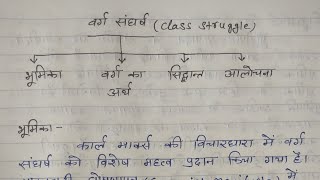 वर्ग संघर्ष (class struggle)
भूमिका वर्ग का सिद्धान्त आलोचना
अर्थ
भूमिका :-
कार्ल मार्क्स की विचारधारा में वर्ग
संघर्ष को विशेष महत्व प्रदान किया गया है।
में